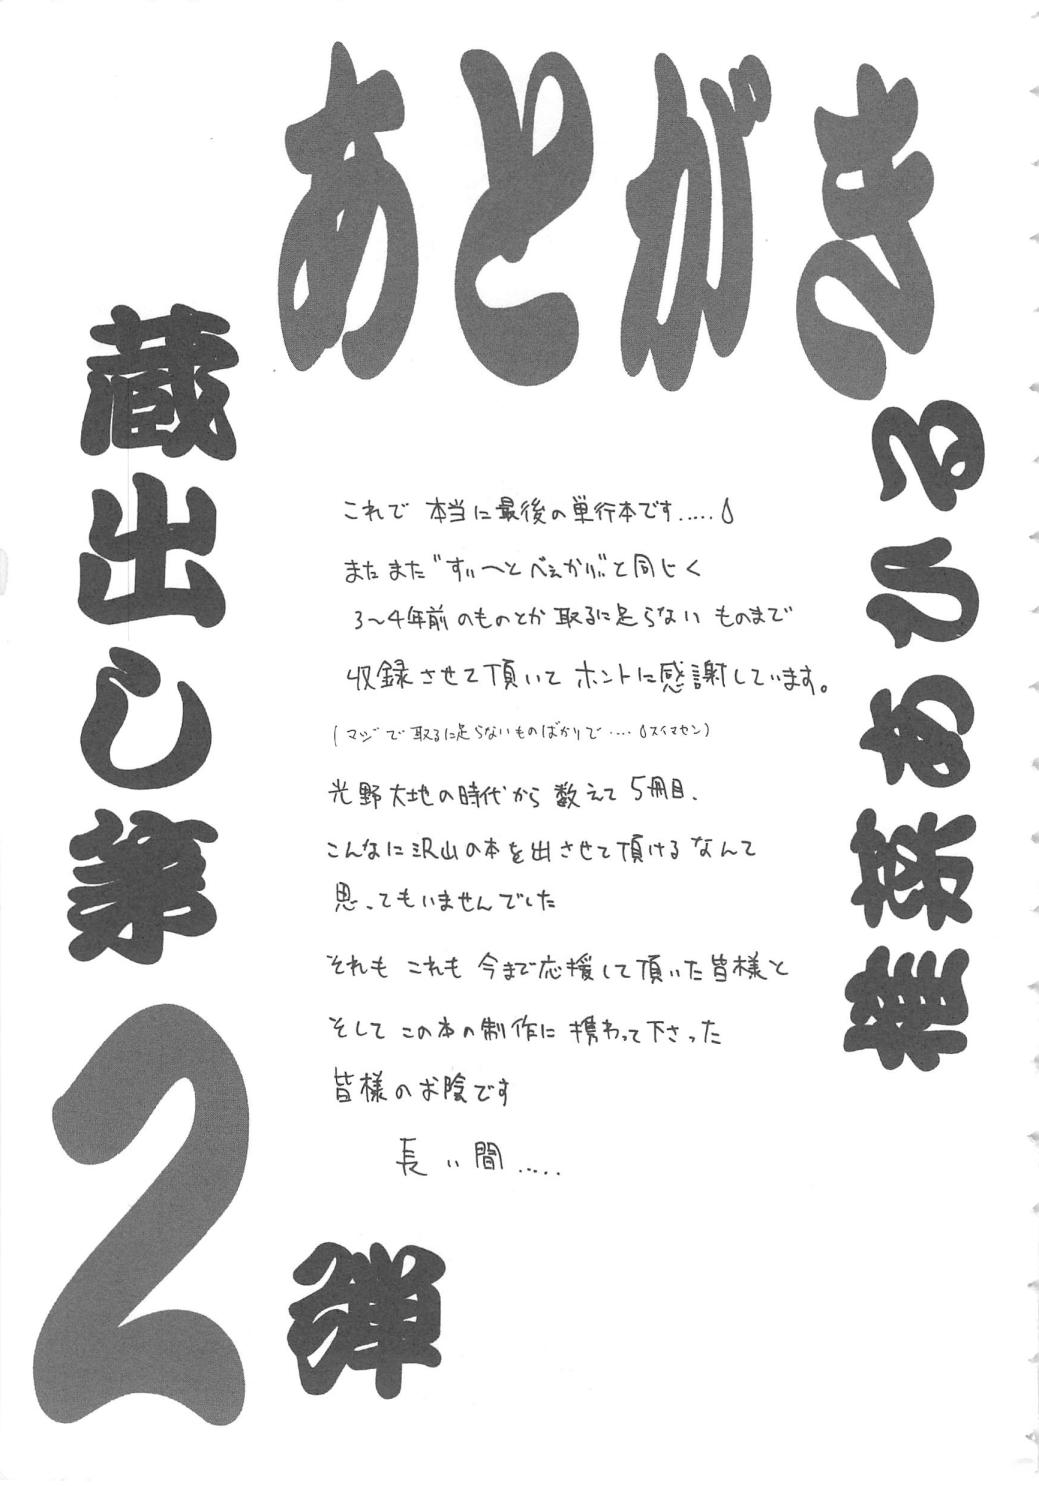 あとがき
蔵出し第2弾
これで 本当に最後の単行本です.....
またまた"すい〜とべぇかりぃ"と同じく
3〜4年前のものとか 取るに足らない ものまで
収録させて頂いて ホントに感謝しています。
(マジで取るに足らないものばかりで....スイマセン)
光野大地の時代から 数えて 5冊目、
こんなに沢山の本を出させて頂けるなんて
思ってもいませんでした
それも これも 今まで応援して頂いた皆様と
そして この本の制作に 携わって下さった
皆様のお陰です
長い間.....
あひる